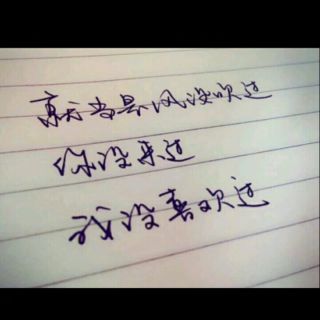 就当是风没吹过
你没来过
我没喜欢过